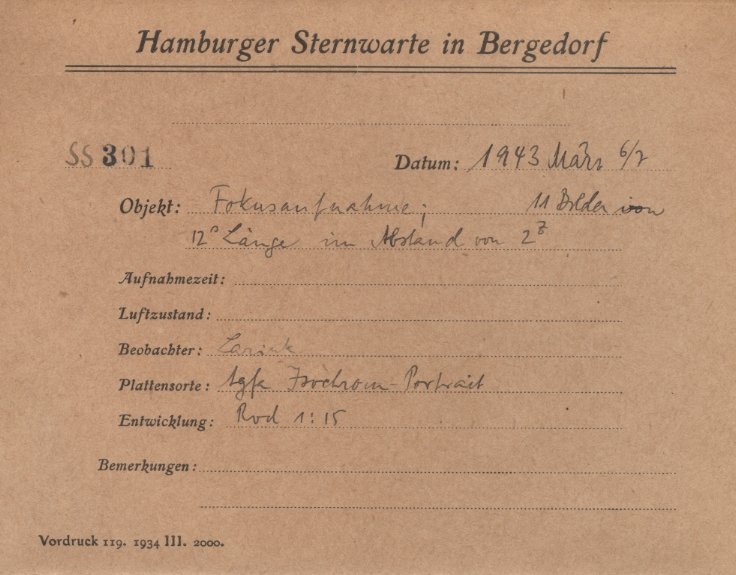 Hamburger Sternwarte in Bergedorf
SS 301
Datum: 1943 März 6/7
Objekt: Fokusaufnahme; 11 Bilder von
12ˢ Länge im Abstand von 2
Aufnahmezeit:
Luftzustand:
Beobachter: Larink
Plattensorte: Agfa Isochrom-Portrait
Entwicklung: Rod 1:15
Bemerkungen:
Vordruck 119. 1934 III. 2000.